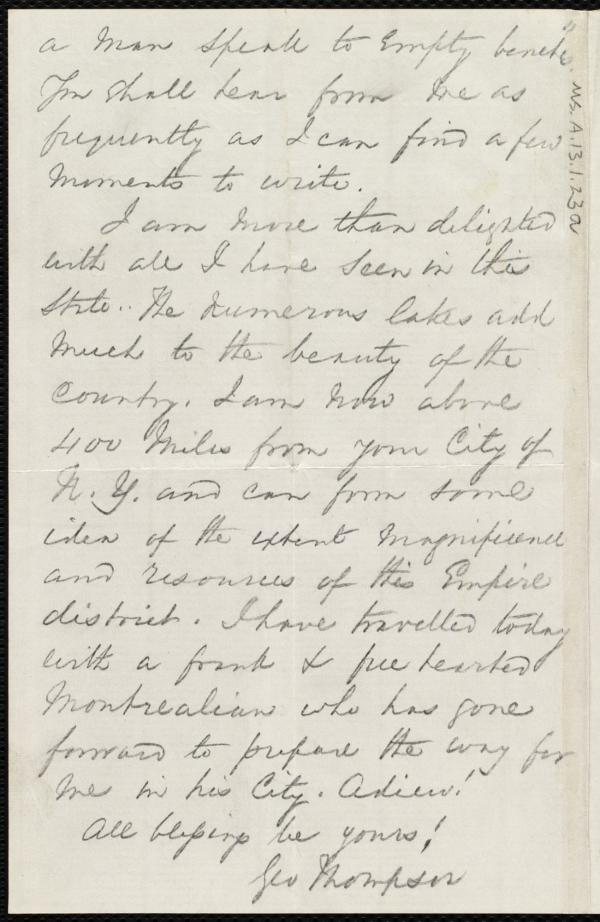 a man speak to empty benches.
You shall hear from me as
frequently as I can find a few
moments to write.
I am more than delighted
with all I have seen in this
State. The numerous lakes add
much to the beauty of the
country. I am now above
400 miles from your City of
N. Y. and can form some
idea of the extent magnificence
and resources of this Empire
district. I have travelled today
with a frank & free hearted
Montrealian who has gone
forward to prepare the way for
me in his City. Adieu!
All blessings be yours!
Geo Thompson
MS. A.13.1.23a